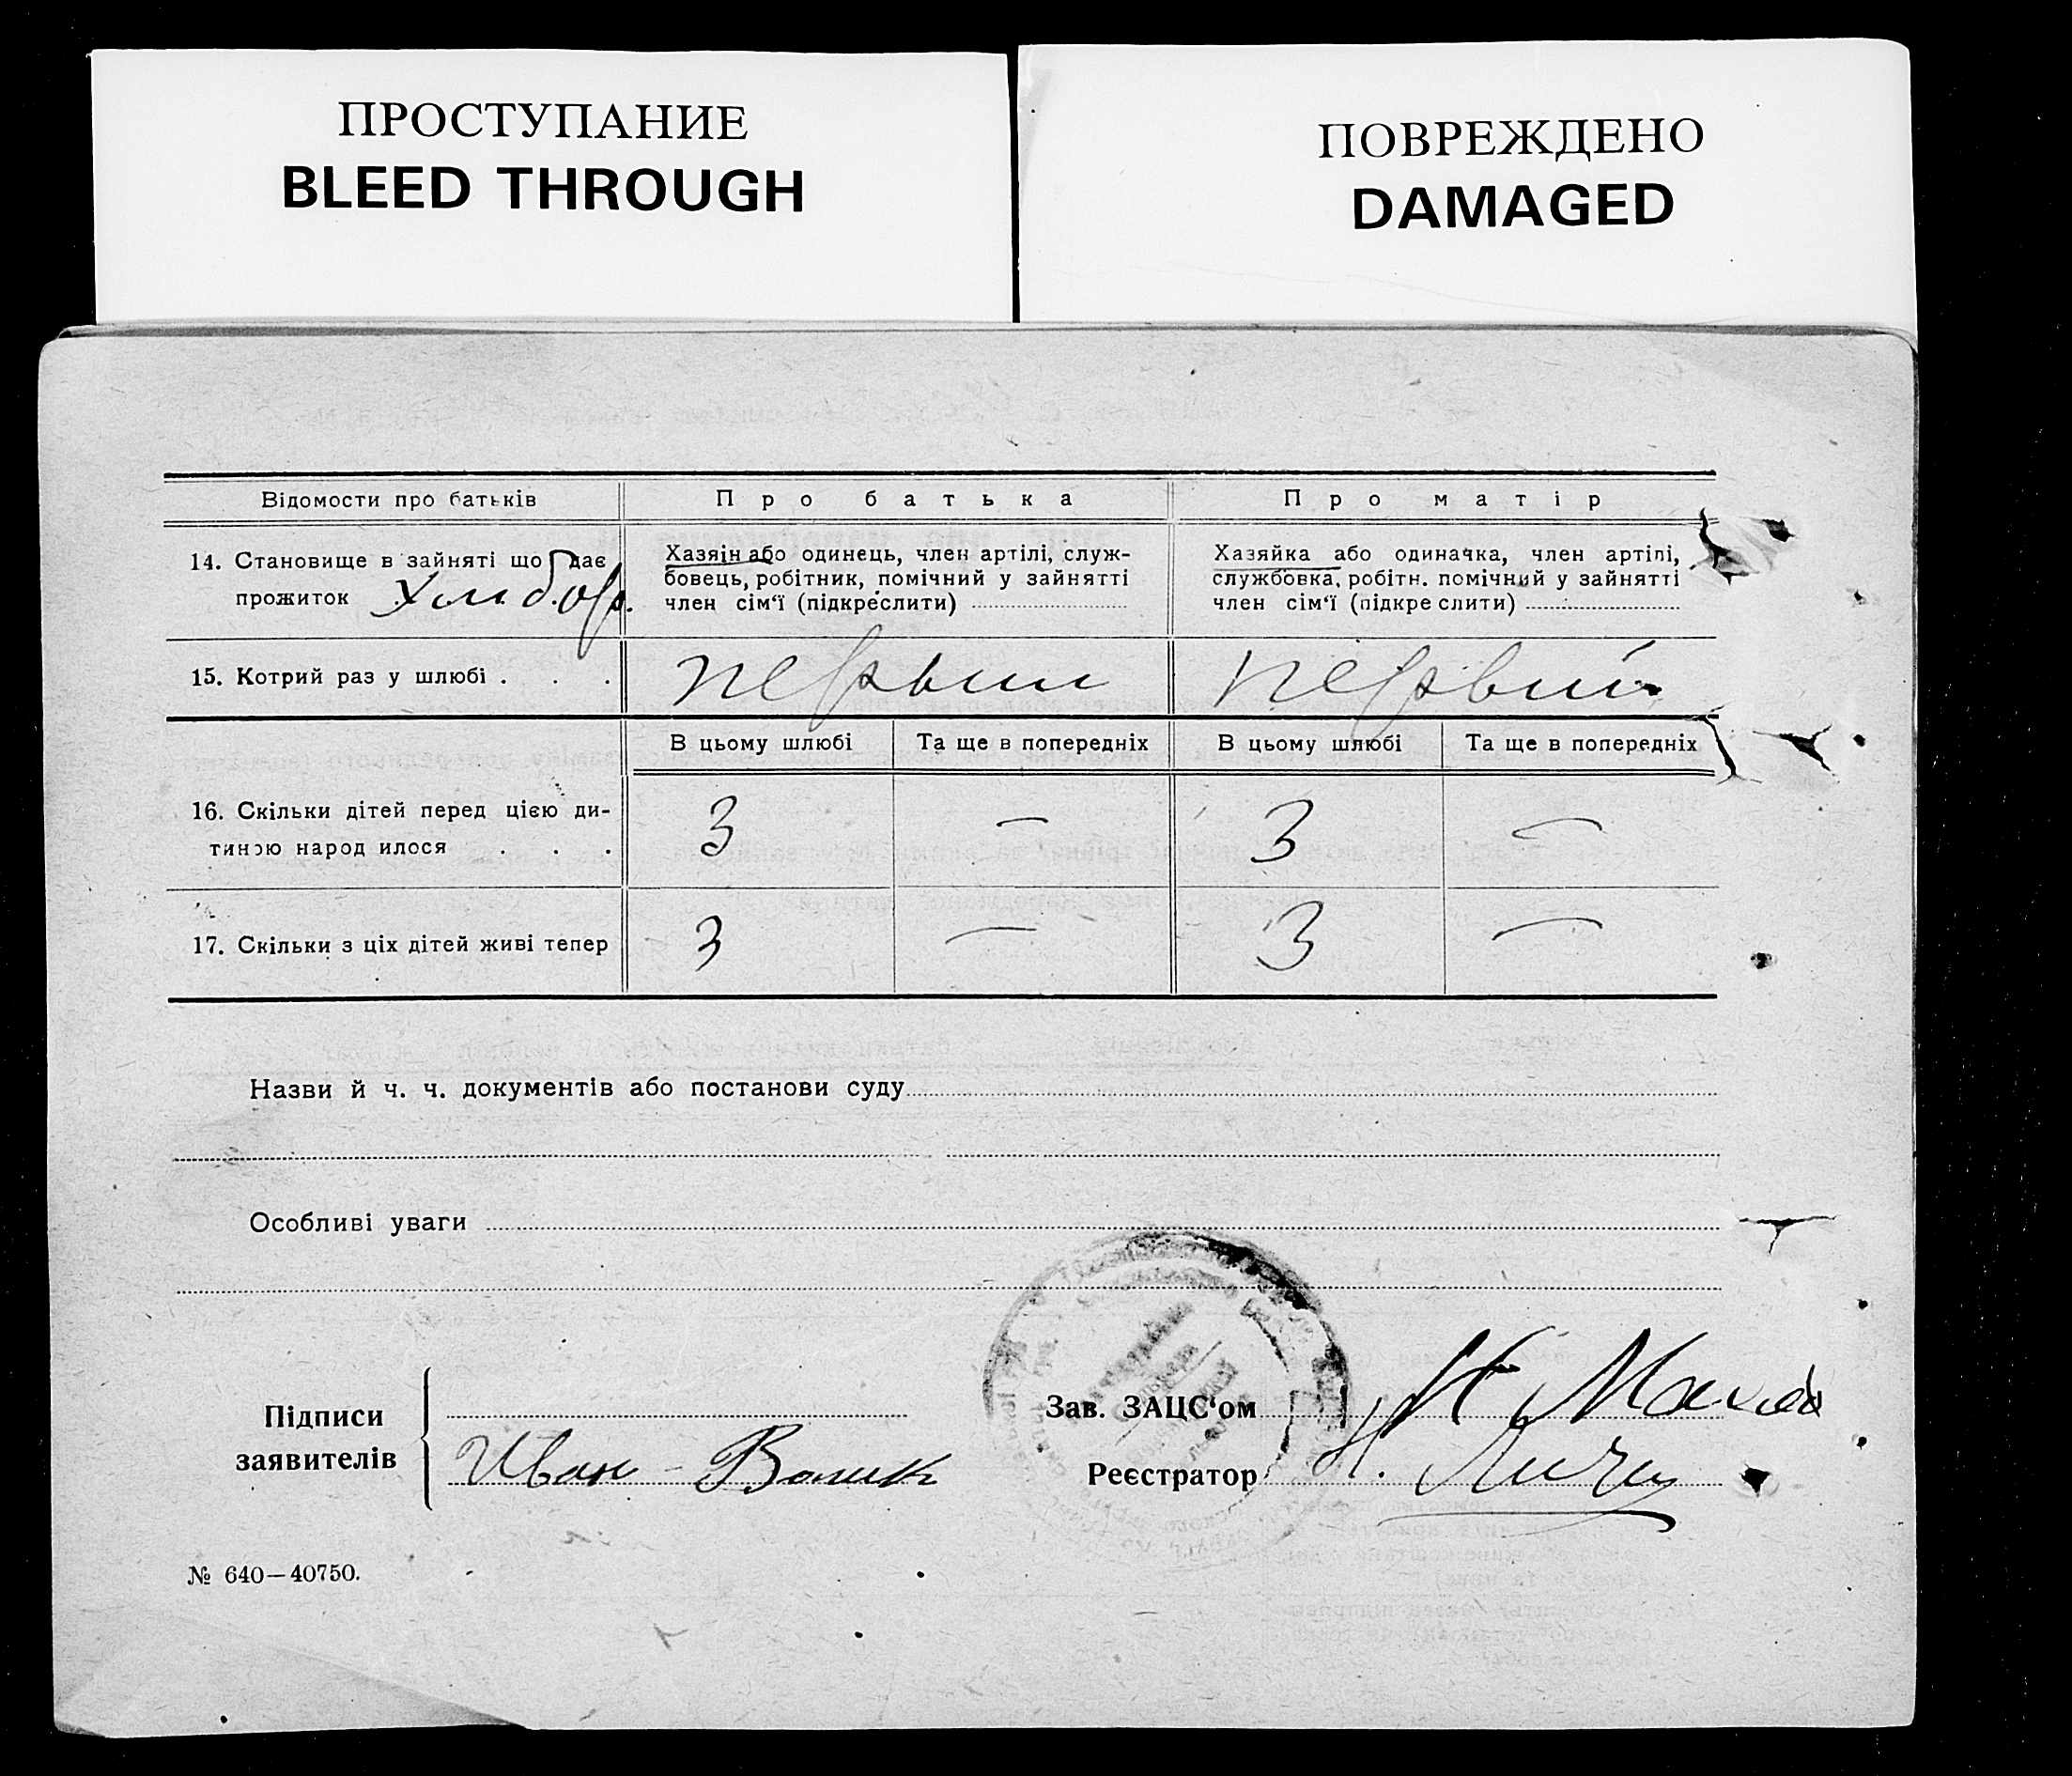 ПРОСТУПАНИЕ
BLEED THROUGH
ПОВРЕЖДЕНО
DAMAGED
Відомости про батьків
Про батька
Про матір
14. Становище в зайняті що дає
прожиток
Хазяін або одинець, член артілі, служ-
бовець, робітник, помічний у зайнятті
член сім‘ї (підкреслити)
Хазяйка або одиначка, член артілі,
службовка, робітн. помічний у зайнятті
член сім‘ї (підкре слити)
15. Котрий раз у шлюбі . . .
первий
первий
В цьому шлюбі
Та ще в попередніх
В цьому шлюбі
Та ще в попередніх
16. Скільки дітей перед цією ди-
тиною народ илося . . .
3 — 3 —
17. Скільки з ціх дітей живі тепер
3 — 3 —
Назви й ч. ч. документів або постанови суду
Особливі уваги
Підписи
заявителів
Иван - Волик
Зав. ЗАЦС‘ом
Реєстратор
№ 640—40750.